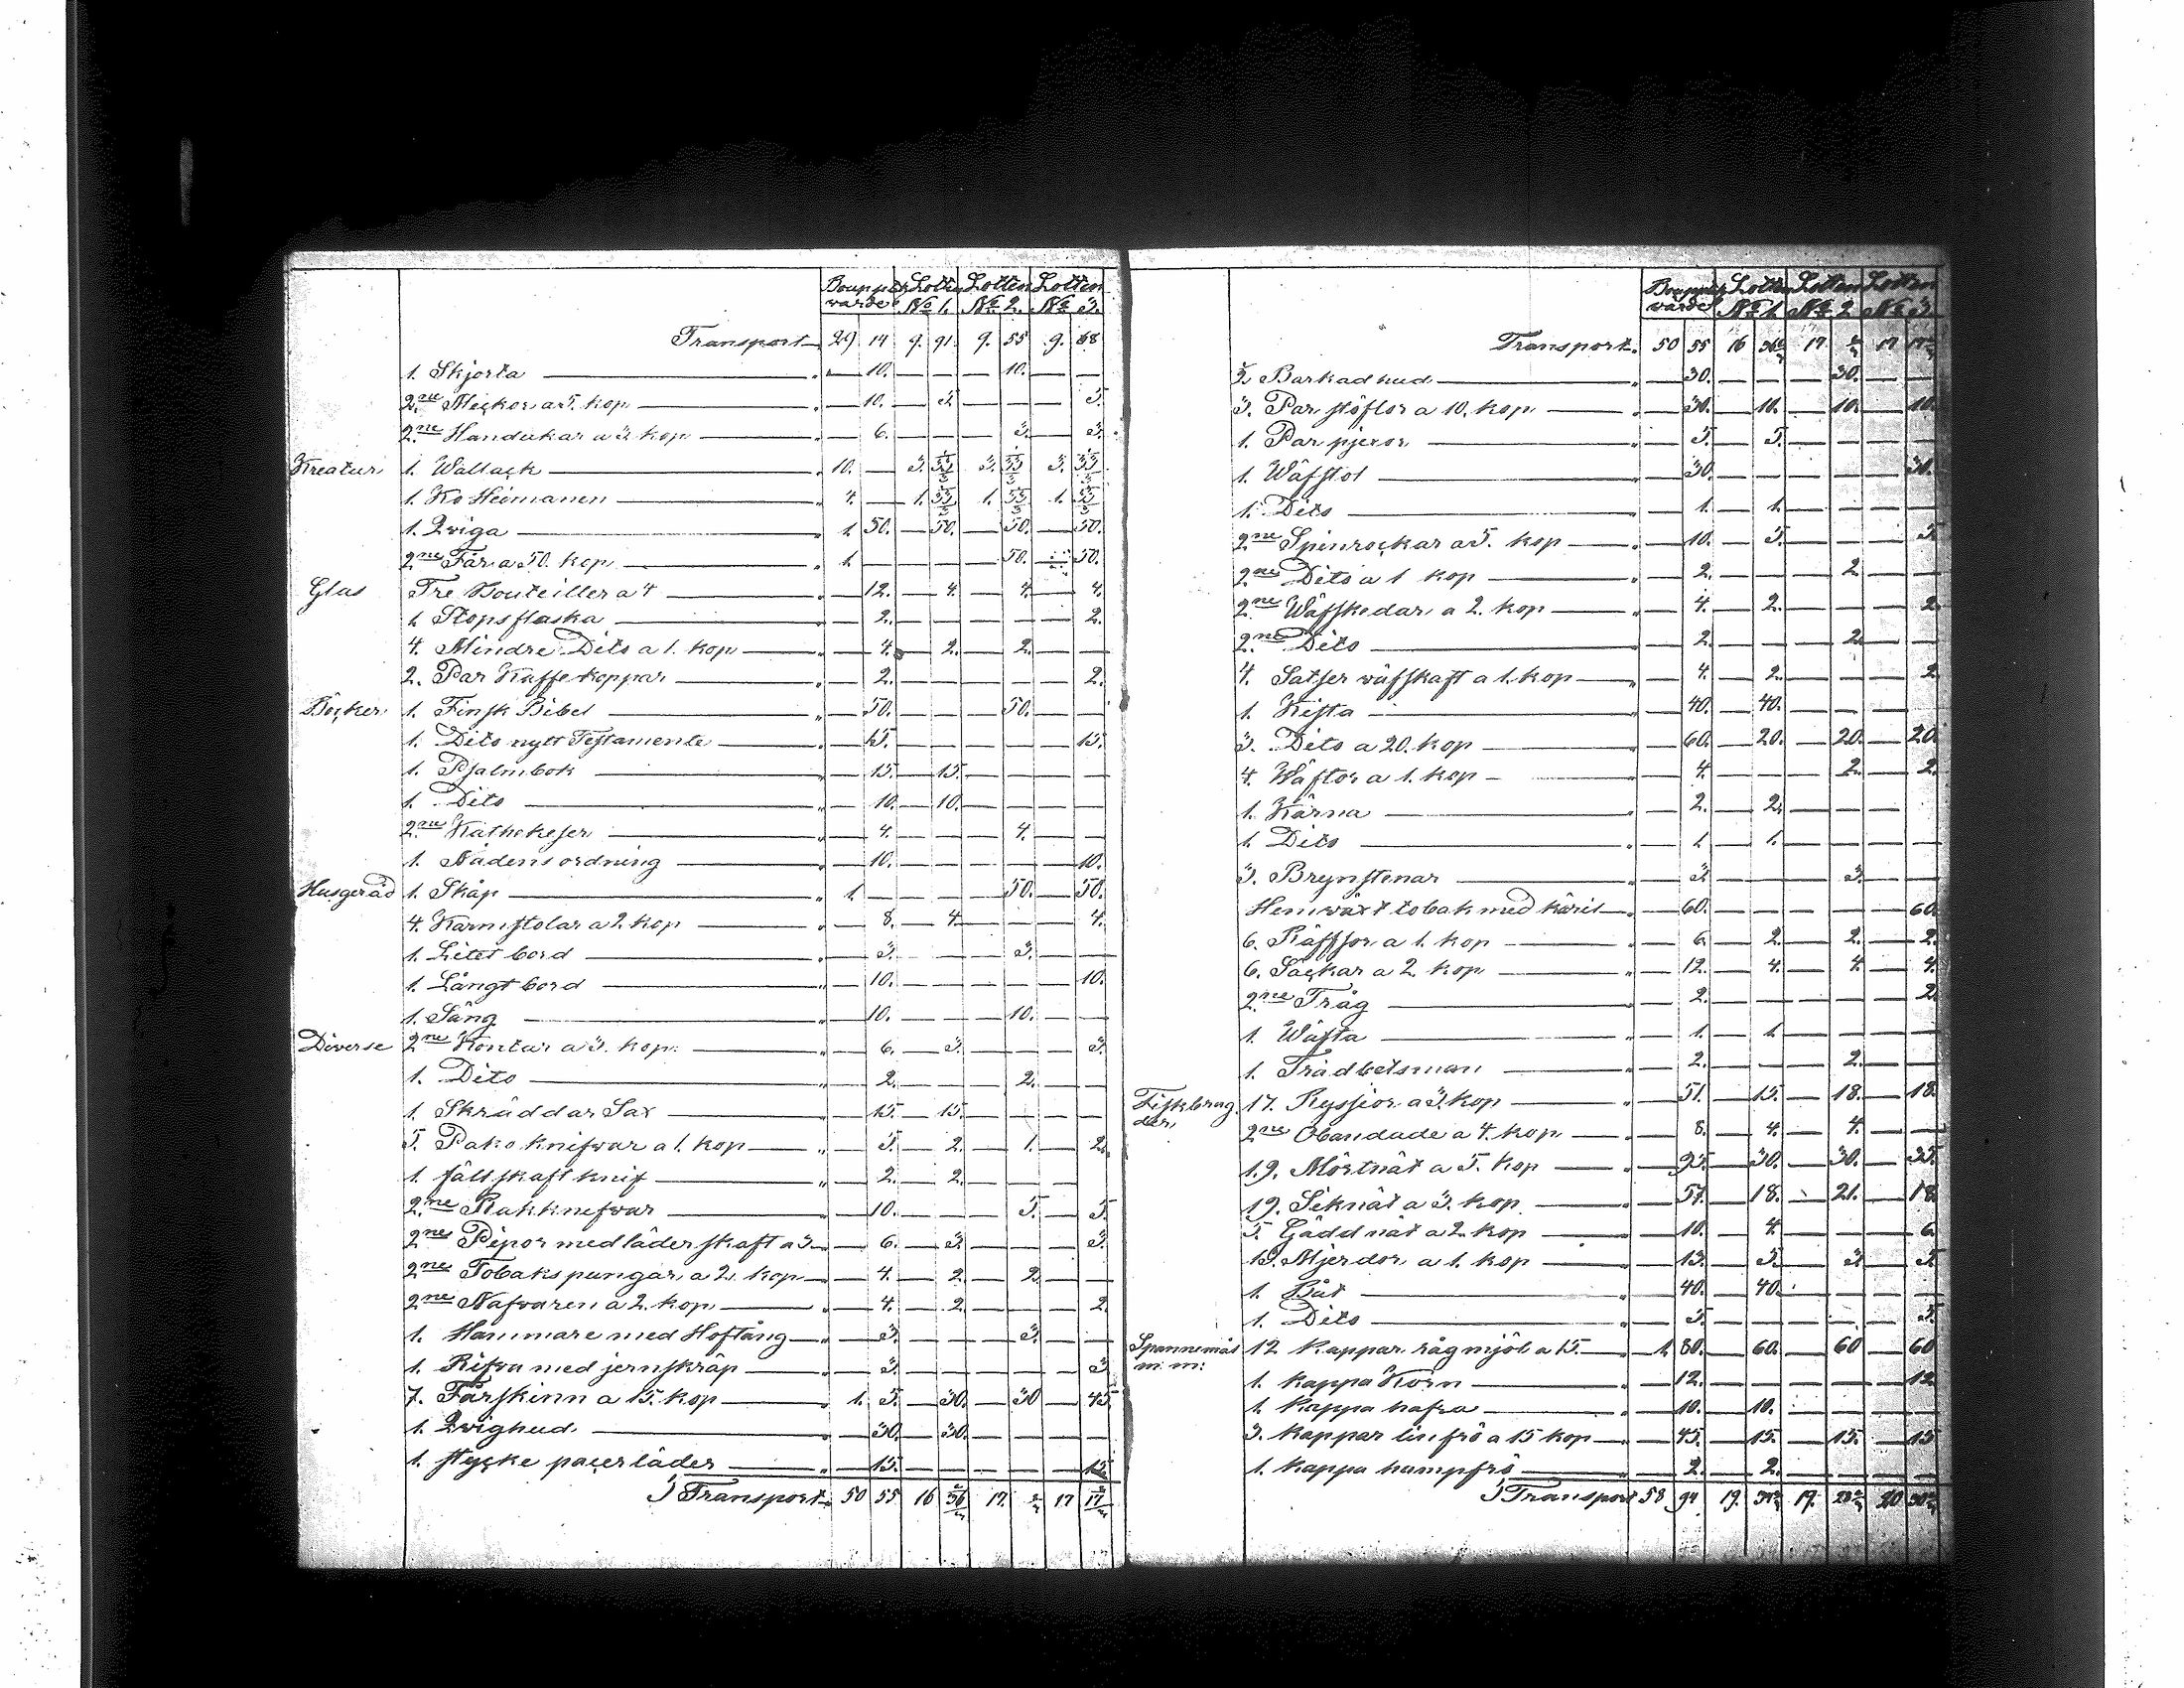 Boupptx Lotten Lotten Lotten
värde No 1. No 2. No 3.
Transport 29 14 9. 91. 9. 55 9. 68
1. Skjorta — 10. — — — 10. — —
2ne Meckor a 5. kop — 10. — 5. — — — 5.
2ne Handukar a 3. kop — 6. — — — 3. — 3.
Kreatur 1. Wallack 10. — 3. 33 1/3 3. 33 1/3 3. 33 1/3
1. Ko Heimanen 4. — 1. 33 1/3 1. 33 1/3 1. 33 1/3
1. Qviga 1. 50. — 50. — 50. — 50.
2ne Får a 50. kop 1. — — — — 50. — 50.
Glas Tre Bouteiller a 4 — 12. — 4. — 4. — 4.
1. Stopsflaska — 2. — — — — — 2.
4. Mindre Dito a 1. kop — 4. — 2. — 2. — —
2. Par Kaffekoppar — 2. — — — — — 2.
Böcker 1. Finsk Bibel — 50. — — — 50. — —
1. Dito nytt Testamente — 15. — — — — — 15.
1. Psalmbok — 15. — 15. — — — —
1. Dito — 10. — 10. — — — —
2ne Kathekeser — 4. — — — 4. — —
1. Nådens ordning — 10. — — — — — 10.
Husgeråd 1. Skåp 1. — — — — 50. — 50.
4. Karmstolar a 2. kop — 8. — 4. — — — 4.
1. Litet bord — 3. — — — 3. — —
1. Långt bord — 10. — — — — — 10.
1. Säng — 10. — — — 10. — —
Diverse 2ne Kontar a 3. kop. — 6. — 3. — — — 3.
1. Dito — 2. — — — 2. — —
1. Skräddar Sax — 15. — 15. — — — —
5. Pako knifvar a 1. kop — 5. — 2. — 1. — 2.
1. fällskaft knif — 2. — 2. — — — —
2ne Rakknifvar — 10. — — — 5. — 5.
2ne Pipor med läderskaft a 3 — 6. — 3. — — — 3.
2ne Tobakspungar a 2. kop — 4. — 2. — 2. — —
2ne Nafvaren a 2. kop — 4. — 2. — — — 2.
1. Hammare med Hoftång — 3. — — — 3. — —
1. Rifva med jernskråp — 3. — — — — — 3.
7. Fårskinn a 15. kop 1. 5. — 30. — 30 — 45
1. Qvighud — 30. — 30. — — — —
1. stycke pacerläder — 15. — — — — — 15.
Transport 50 55 16 36 17. 17

Boupptx Lotten Lotten Lotten
värde No 1. No 2 No 3.
Transport. 50 55 16 36 17. 17
1/2 Barkad hud — 30. — — — 30. — —
3. Par stöflor a 10. kop — 30. — 10. — 10. — 10.
1. Par pjexor — 5. — 5. — — — —
1. Wäfstol — 30. — — — — — 30.
1. Dito — 1. — 1. — — — —
2ne Spinrockar a 5. kop — 10. — 5. — — — 5.
2ne Dito a 1 kop — 2. — — — 2 — —
2ne Wäfskedar a 2. kop — 4. — 2. — — — 2.
2ne Dito — 2. — — — 2. — —
4. Satser wäfskaft a 1. kop — 4. — 2. — — — 2.
1. Kista — 40. — 40. — — — —
3. Dito a 20. kop — 60. — 20. — 20. — 20.
4. Wäftor a 1. kop — 4. — — — 2. — 2.
1. Kärna — 2. — 2. — — — —
1. Dito — 1. — 1. — — — —
3. Brynstenar — 3. — — — 3. — —
Hemväxt tobak med käril — 60. — — — — — 60.
6. Räfssor a 1. kop — 6. — 2. — 2. — 2.
6. Säckar a 2. kop — 12. — 4. — 4. — 4.
2ne Tråg — 2. — — — — — 2.
1. Wåfta — 1. — 1. — — — —
1. Trädbetsman — 2. — — — 2. — —
Fiskbrag 17. Ryssior a 3. kop — 51. — 15. — 18. — 18.
der, 2ne Obandade a 4. kop — 8. — 4. — 4. — —
19. Mörtnät a 5. kop — 95. — 30. — 30. — 35.
19. Siknät a 3. kop — 57. — 18. — 21. — 18.
5. Gäddnät a 2. kop — 10. — 4. — — — 6.
13. Mjerdor a 1. kop — 13. — 5. — 3. — 5.
1. Båt — 40. — 40. — — — —
1. Dito — 5. — — — — — 5.
Spannemål 12 Kappar rågmjöl a 15. 1. 80. — 60. — 60 — 60
m: m: 1. kappa Korn — 12. — — — — — 12.
1. Kappa hafra — 10. — 10. — — — —
3. Kappar linfrö a 15 kop — 45. — 15. — 15. — 15
1. kappa hampfrö — 2. — 2. — — — —
Transport 58 94 19. 19. 20